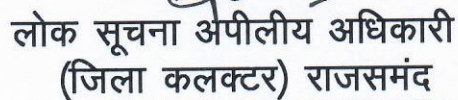 लोक सूचना अपीलीय अधिकारी
(जिला कलक्टर) राजसमंद